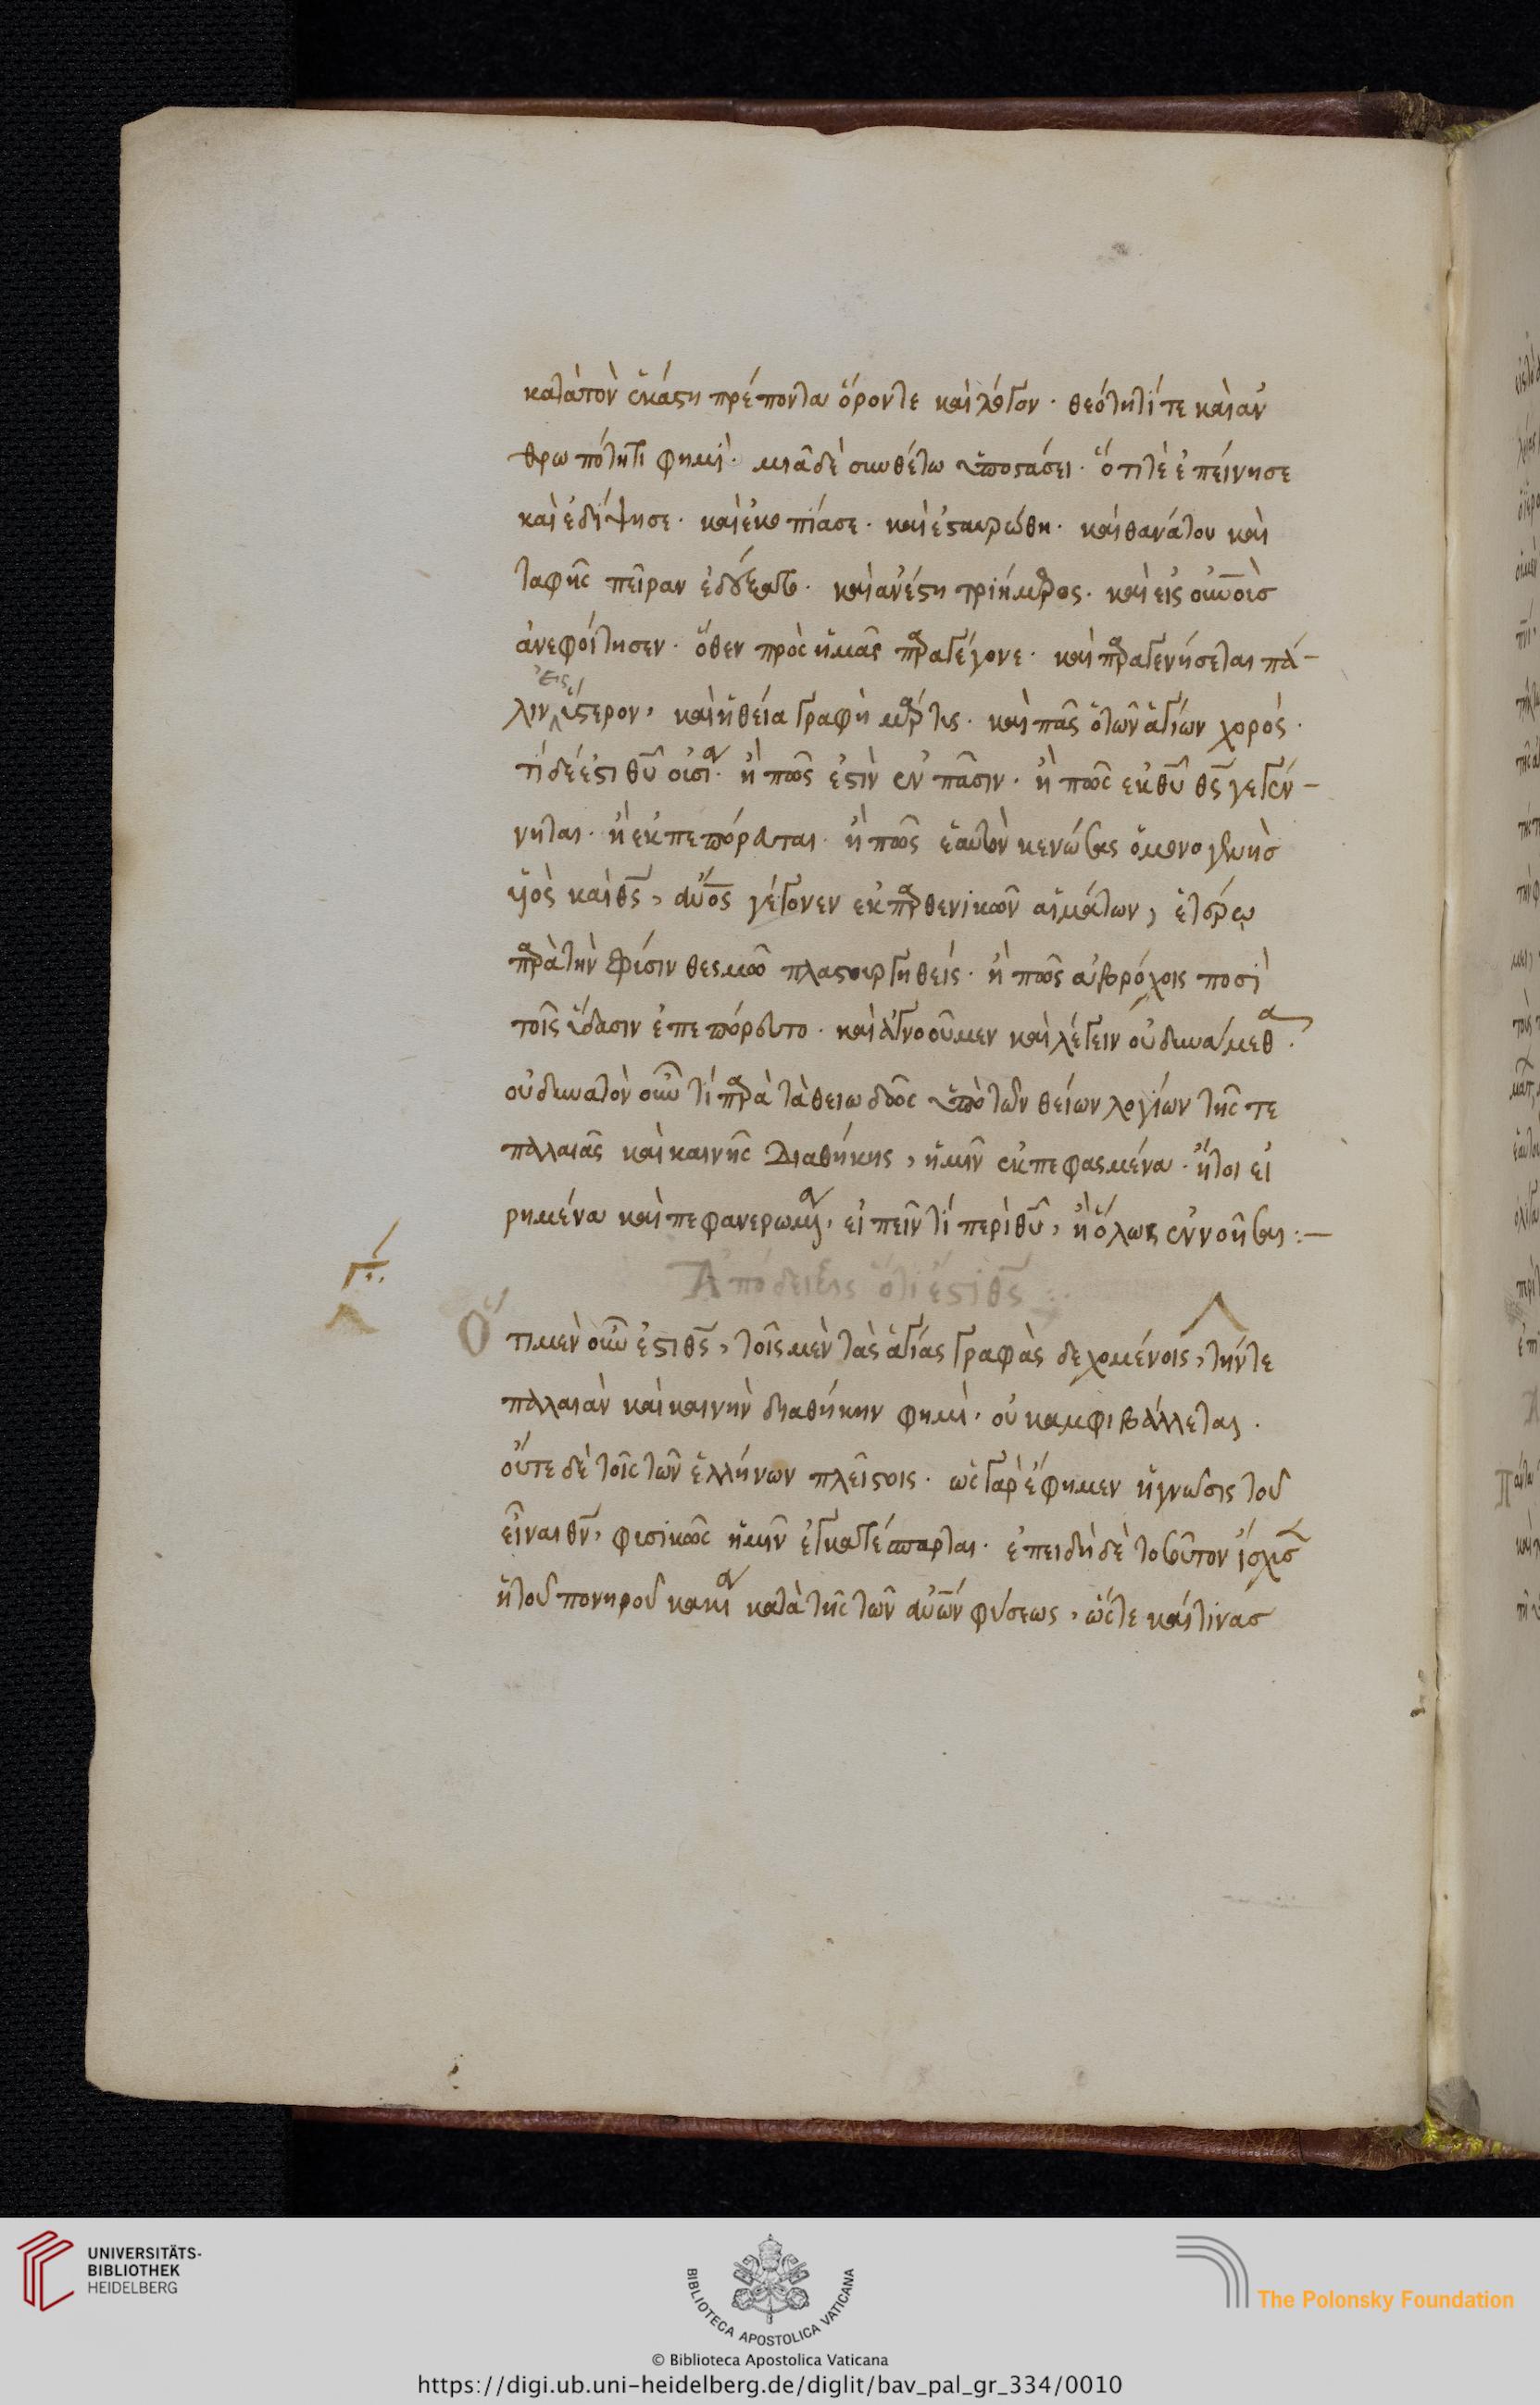 κατὰ τὸν ἑκάστη πρέποντα ὅρον τε καὶ λόγον· θεότητί τε καὶ ἀν
θρωπότητι φημί· μιᾷ δὲ συνθέτω ὑποστάσει· ὅτι τὲ ἐπείνησε
καὶ ἐδίψησε· καὶ ἐκοπίασε· καὶ ἐσταυρώθη· καὶ θανάτου καὶ
ταφῆς πεῖραν ἐδέξατο· καὶ ἀνέστη τριήμερος· καὶ εἰς οὐνοὺσ
ἀνεφοίτησεν· ὅθεν πρὸς ἡμᾶς παραγέγονε· καὶ παραγενήσεται πά-
λιν εἰς ὕστερον· καὶ ἡ θεία γραφὴ μάρτυς· καὶ πᾶς ὁ τῶν ἁγίων χορός·
τί δέ ἐστι θυ οὐσία· ἢ πῶς ἐστὶν ἐν πᾶσιν· ἢ πῶς ἐκ θυ θς γεγέν-
νηται· ἢ ἐκπεπόρευται· ἢ πῶς ἑαυτὸν κενώσας ὁ μονογενὴσ
υἱὸς καὶ θς, ἀνος γέγονεν ἐκ παρθενικῶν αἱμάτων, ἑτέρω
παρὰ τὴν φύσιν θεσμῶ πλαστουργηθείς· ἢ πῶς ἀβρόχοις ποσὶ
τοῖς ὕδασιν ἐπεπόρευτο· καὶ ἀγνοοῦμεν καὶ λέγειν οὐ δυνάμεθα·
οὐ δυνατὸν οὖν τί παρὰ τὰ θειωδῶς ὑπὸ τῶν θείων λογίων τῆς τε
παλαιᾶς καὶ καινῆς διαθήκης, ἡμῖν ἐκπεφασμένα· ἤτοι εἰ
ρημένα καὶ πεφανερωμένα, εἰπεῖν τί περὶ θυ, ἢ ὅλως ἐννοῆσαι:—
Ἀπόδειξις ὅτι ἐστὶ θς:
Ὅτι μὲν οὖν ἐστι θς, τοῖς μὲν τὰς ἁγίας γραφὰς δεχομένοις, τήν τε
παλαιὰν καὶ καινὴν διαθήκην φημὶ, οὐκ ἀμφιβάλλεται·
οὔτε δὲ τοῖς τῶν ἑλλήνων πλείστοις· ὡς γὰρ ἔφημεν ἡ γνῶσις τοῦ
εἶναι θν, φυσικῶς ἡμῖν ἐγκατέσπαρται· ἐπειδὴ δὲ τοσοῦτον ἴσχυσεν
ἡ τοῦ πονηροῦ κακία κατὰ τῆς τῶν ἀνων φύσεως, ὥστε καί τινασ
UNIVERSITÄTS-
BIBLIOTHEK
HEIDELBERG
BIBLIOTECA APOSTOLICA VATICANA
The Polonsky Foundation
© Biblioteca Apostolica Vaticana
https://digi.ub.uni-heidelberg.de/diglit/bav_pal_gr_334/0010